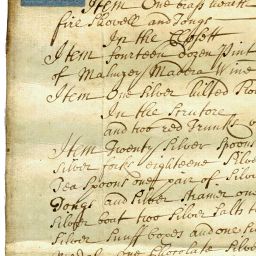 Item One brass
fire Shovell and Tongs
In the Clossett
Item fourteen dozen Pint
of Malmsey Madera Wine
Item One Silver hilted
In the Scrutore
and two red Trunks
Item Twenty Silver Spoons
Silver forks Eighteene Silve
Tea Spoons one pair of Silve
Tongs and Silver Strainer one
Silver boat two Silver Salts t
Silver Snuff boxes and one Si
one Chocolate Silve